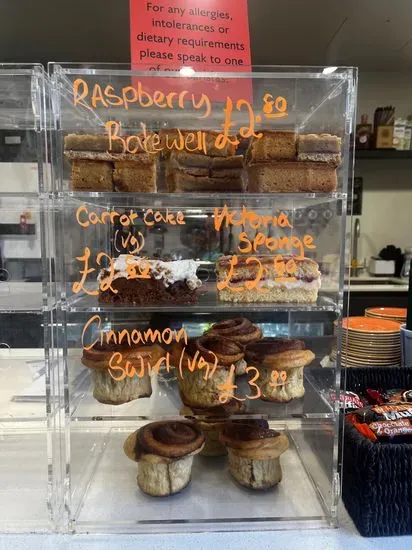 For any allergies,
intolerances or
dietary requirements
please speak to one
RASpberry
Bakewell £2.80
Carrot Cake
(Vg)
£2.80
Victoria
Sponge
£2.80
Cinnamon
Swirl (Vg)
£3.00
Chocolate
Orange